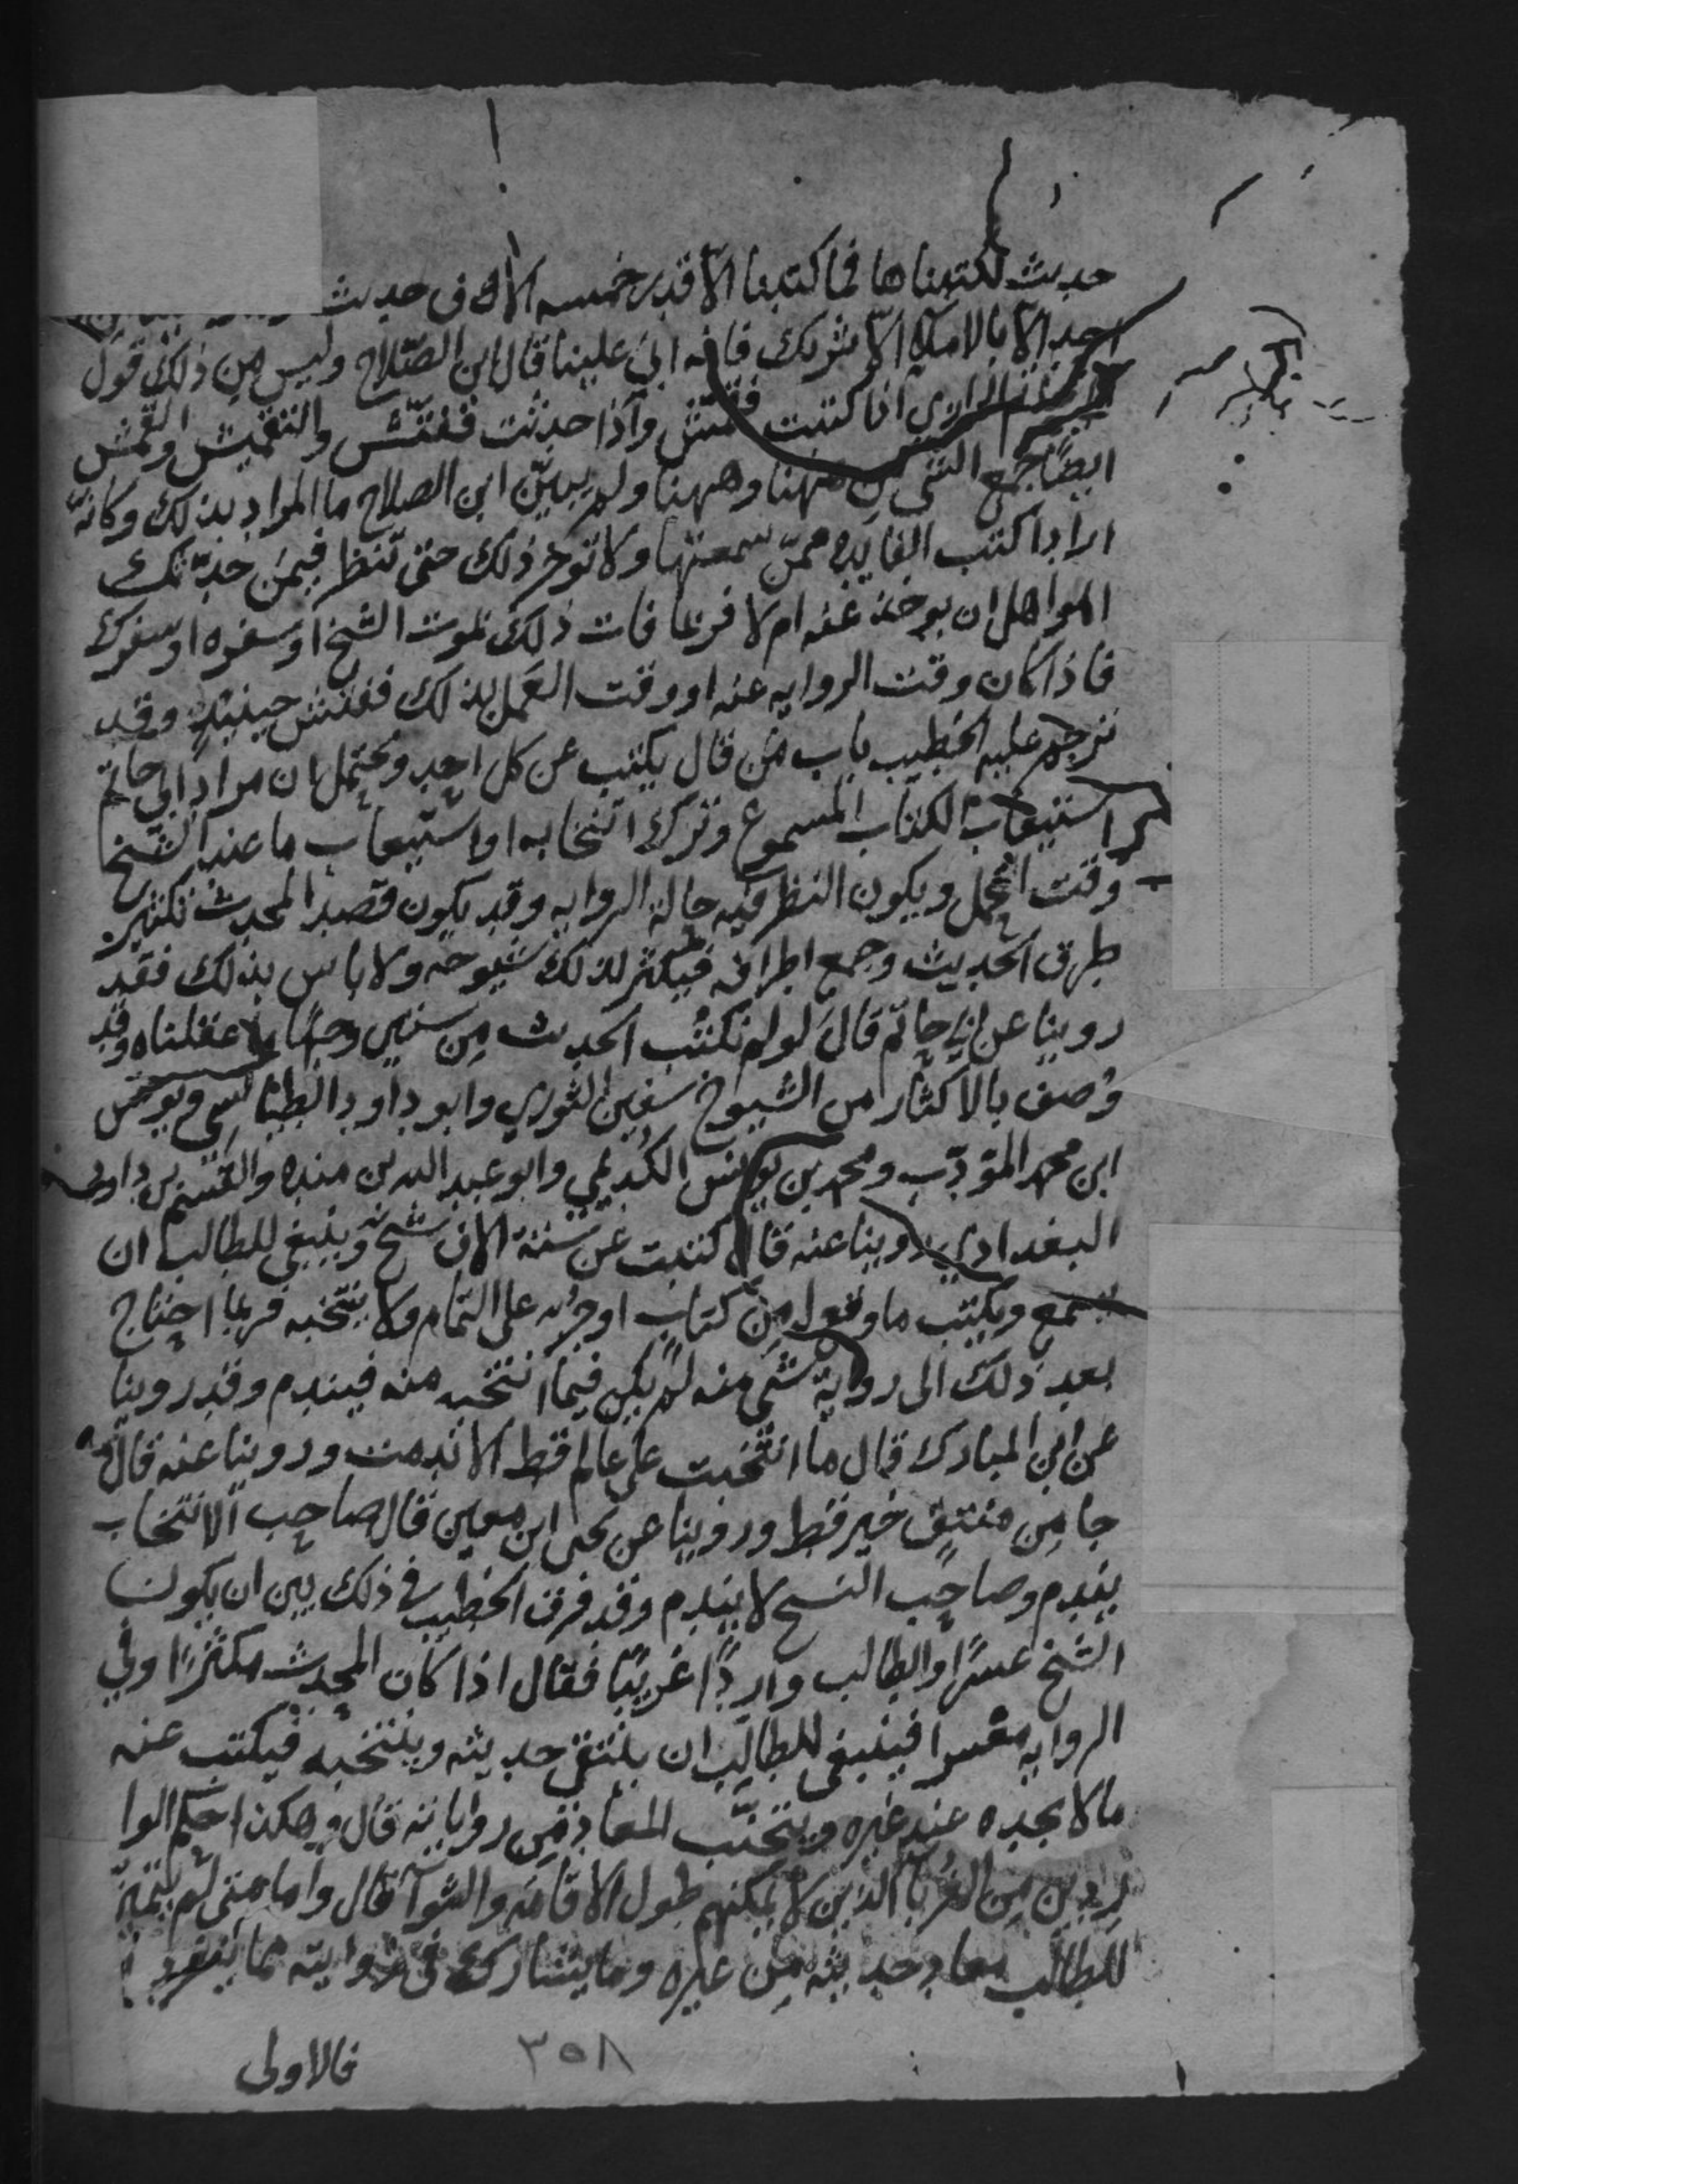 حديث لكتبناها فما كتبنا الا قدر خمسه الاف حديث
احد الا بالاملاء الا شريك فانه ابى علينا قال ابن الصلاح وليس من ذلك قول
الرازي اذا كتبت فقمش واذا حدثت ففتش والتقميش والقمش
ايضا جمع الشي من ههنا وههنا ولم يبين ابن الصلاح ما المراد بذلك وكانه
اراد اكتب الفايده ممن سمعتها ولا توخر ذلك حتى تنظر فيمن حدثك
اهو اهل ان يوخذ عنه ام لا فربما فات ذلك بموت الشيخ او سفره او سفرك
فاذا كان وقت الروايه عنه او وقت العمل بذلك ففتش حينيذ وقد
ترجم عليه الخطيب باب من قال يكتب عن كل احد ويحتمل ان مراد ابي حاتم
استيعاب الكتاب المسموع وترك انتخابه او استيعاب ما عند الشيخ
وقت التحمل ويكون النظر فيه حالة الروايه وقد يكون قصد المحدث تكثير
طرق الحديث وجمع اطرافه فيكثر لذلك شيوخه ولا باس بذلك فقد
روينا عن ابي حاتم قال لو لم نكتب الحديث من ستين وجها ما عقلناه وقد
وصف بالاكثار من الشيوخ سفين الثوري وابو داود الطيالسي ويونس
ابن محمد المؤدب ومحمد بن يونس الكديمي وابو عبد الله بن منده والقسم بن داود
البغدادي روينا عنه قال كتبت عن ستة الاف شيخ وينبغي للطالب ان
يسمع ويكتب ما وقع له من كتاب او جزء على التمام ولا ينتخبه فربما احتاج
بعد ذلك الى رواية شي منه لم يكن فيما انتخبه منه فيندم وقد روينا
عن ابن المبارك قال ما انتخبت على عالم قط الا ندمت وروينا عنه قال ما
جا من منتق خير قط وروينا عن يحيى ابن معين قال صاحب الانتخاب
يندم وصاحب النسخ لا يندم وقد فرق الخطيب في ذلك بين ان يكون
الشيخ عسرا والطالب واردا غريبا فقال اذا كان المحدث مكثرا وفي
الروايه متعسرا فينبغي للطالب ان ينتقي حديثه وينتخبه فيكتب عنه
ما لا يجده عند غيره ويتجنب المعاد من رواياته قال وهكذا حكم الوا
ردين من الغربا الذين لا يمكنهم طول الاقامه والثوا قال واما متى لم يتميز
للطالب معاد حديثه من غيره وما يشارك في روايته مما يتفرد
فالاولى
٣٥٨